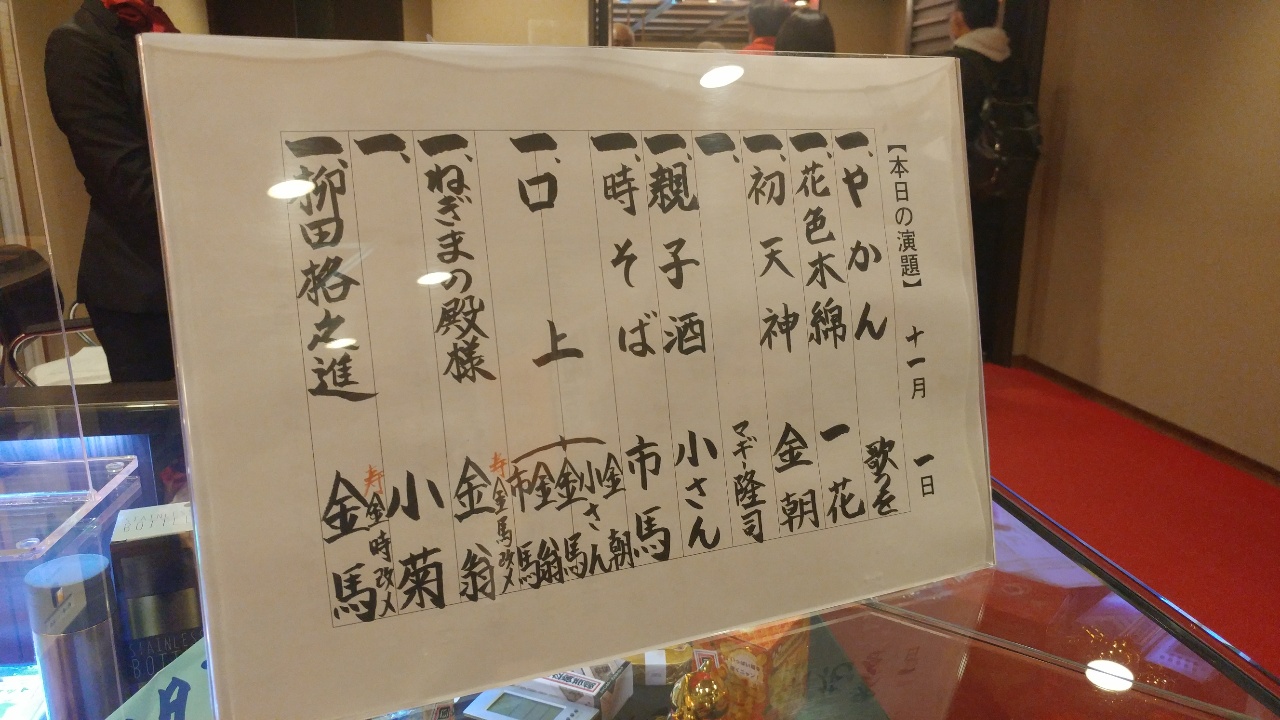 【本日の演題】 十一月 一日
一、やかん 歌つを
一、花色木綿 一花
一、初天神 金朝
一、 マギー隆司
一、親子酒 小さん
一、時そば 市馬
一、口上 金朝 小さん 金馬 金翁 市馬
一、ねぎまの殿様 寿 金馬改メ 金翁
一、 小菊
一、柳田格之進 寿 金時改メ 金馬
STAINLESS
BOTT